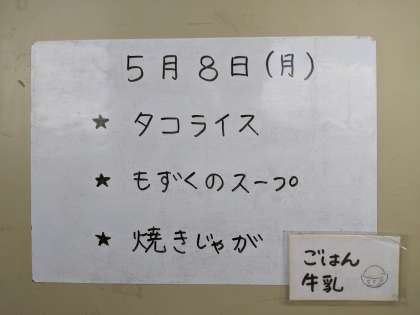 5月8日(月)
★ タコライス
★ もずくのスープ
★ 焼きじゃが
ごはん
牛乳